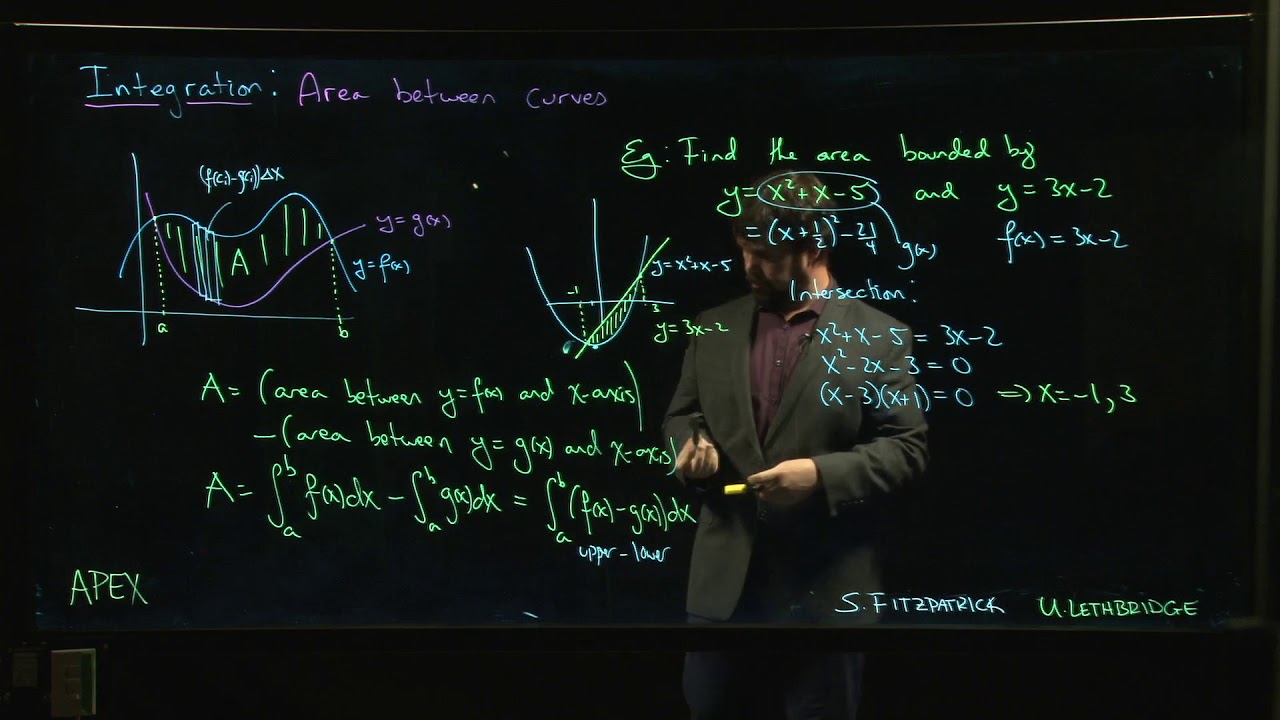 Integration: Area between curves
(f(cᵢ)-g(cᵢ))Δx
y=g(x)
y=f(x)
A
a
b
A = (area between y=f(x) and x-axis)
-(area between y=g(x) and x-axis)
A = ∫ₐᵇ f(x)dx - ∫ₐᵇ g(x)dx = ∫ₐᵇ (f(x)-g(x))dx
upper-lower
APEX
Eg: Find the area bounded by
y = x²+x-5 and y = 3x-2
= (x+1/2)² - 21/4
g(x)
f(x) = 3x-2
y=x²+x-5
-1
3
y=3x-2
Intersection:
x²+x-5 = 3x-2
x²-2x-3 = 0
(x-3)(x+1) = 0 ⇒ x=-1,3
S. FITZPATRICK U. LETHBRIDGE